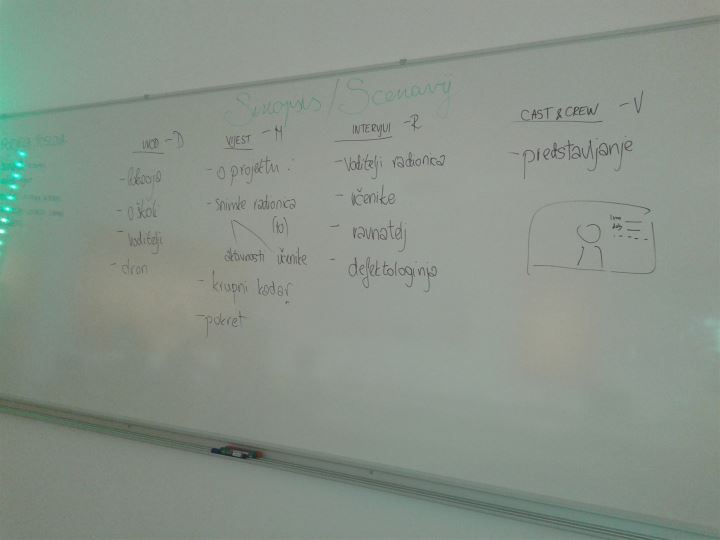 Sinopsis/Scenarij
UVOD - D
- lokacija
- o školi
- voditelji
- dron
VIJEST - M
- o projektu :
- snimke radionica
(10)
aktivnosti učenike
- krupni kadar
- pokret
INTERVJUI - R
- voditelji radionica
- učenike
- ravnatelj
- defektologinja
CAST & CREW - V
- predstavljanje